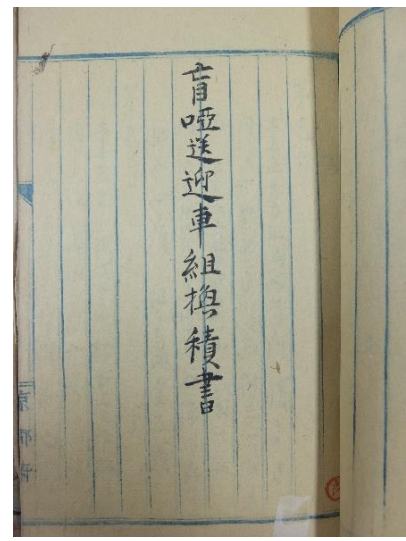 盲唖送迎車組換積書
京都府